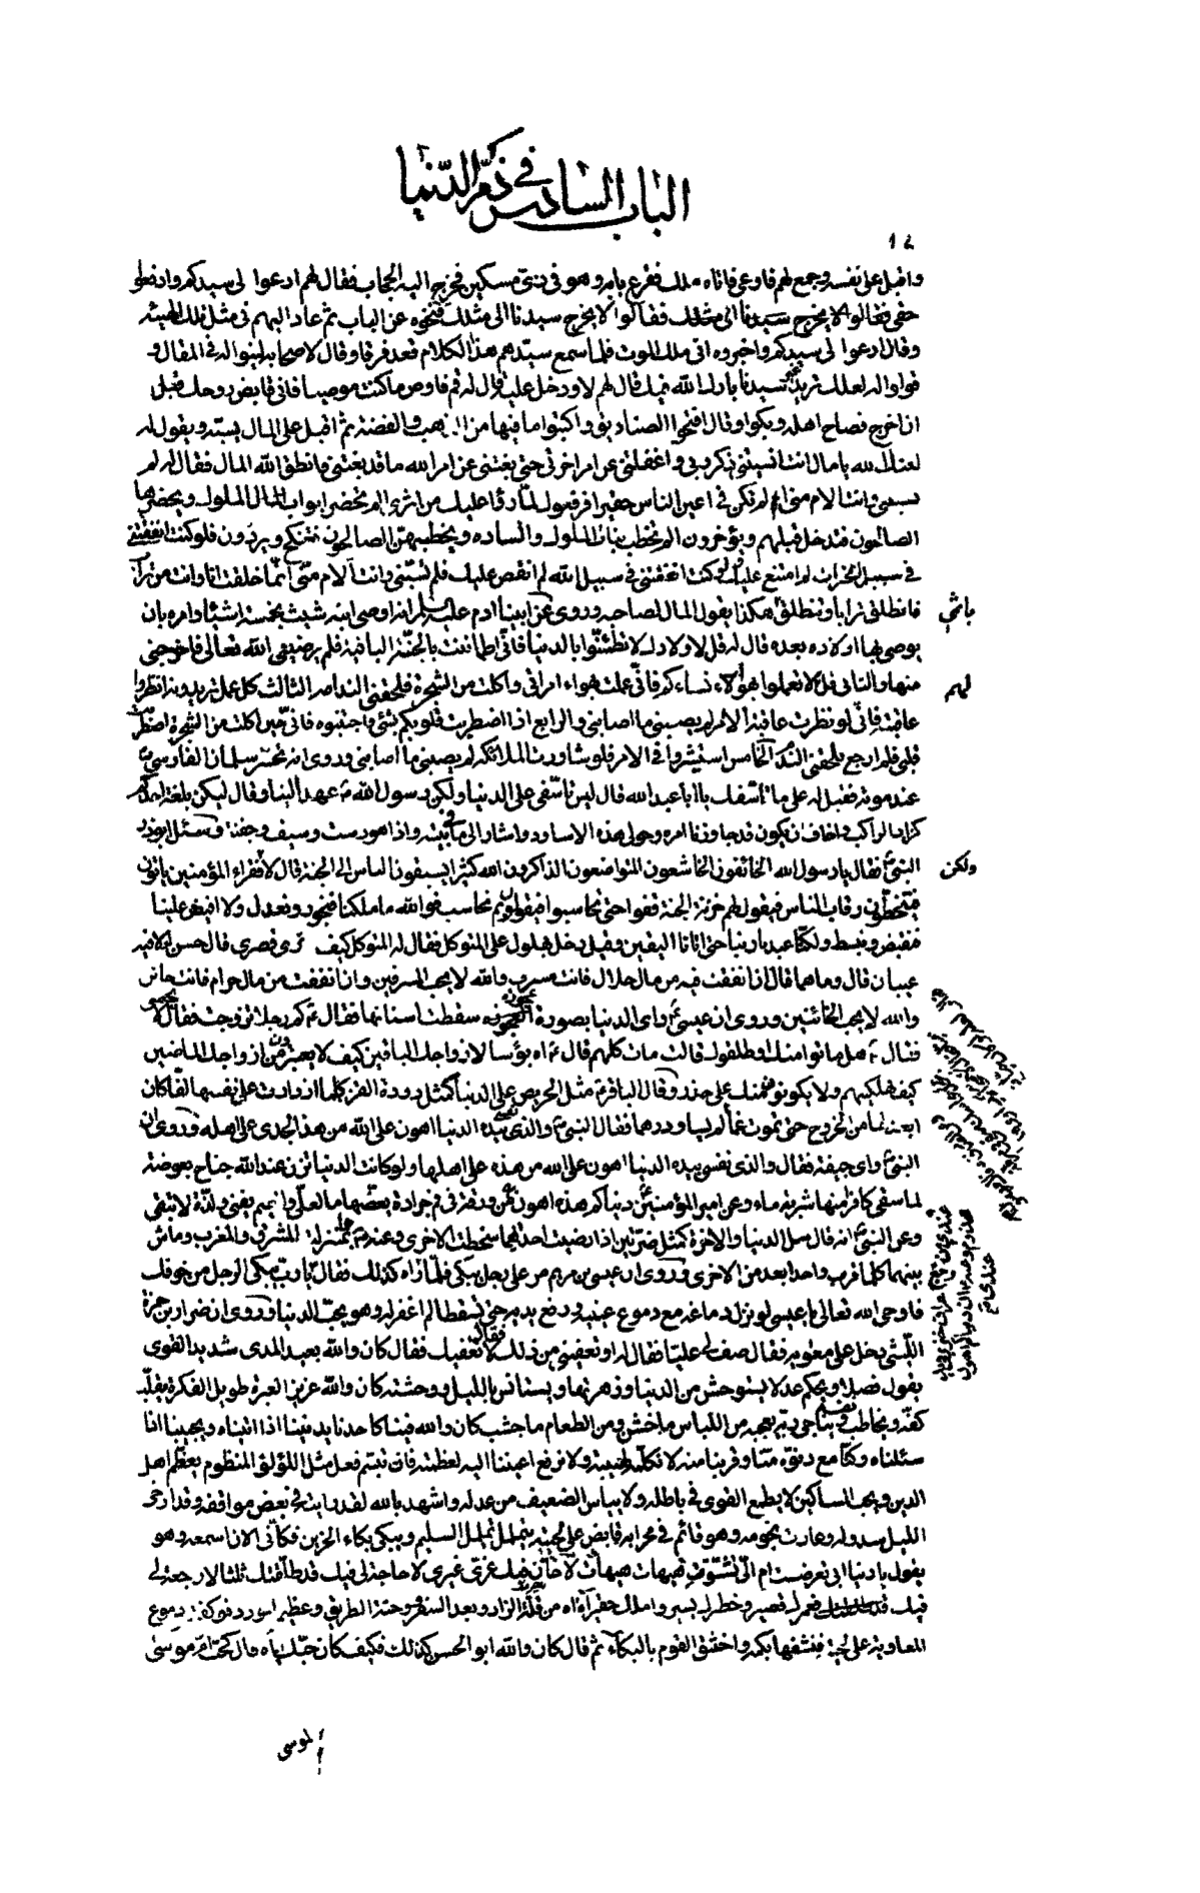 الباب السادس في ذمّ الدّنيا
واقبل على نفسه وجمع لهم فاوعى فاتاه ملك فقرع بابه وهو في زىّ مسكين فخرج اليه الحجاب فقال لهم ادعوا لى سيدكم
فقالوا لا يخرج سيدنا الى مثلك فقالوا لا يخرج سيدنا الى مثلك فنحّوه عن الباب ثم عاد اليهم فى مثل تلك الهيئة
وقال ادعوا لى سيدكم واخبروه انى ملك الموت فلما سمع سيدهم هذا الكلام قعد فرقا وقال لاصحابه لينوا له فى المقال و
قولوا له لعلك تريد غير سيدنا بارك الله فيك قال لهم لا ودخل عليه وقال له قم فاوص ما كنت موصيا فانى قابض روحك قبل
ان اخرج فصاح اهله وبكوا وقال افتحوا الصناديق واكتبوا ما فيها من الذهب والفضة ثم اقبل على المال يسبّه ويقول له
لعنك الله يا مال انت انسيتنى ذكر ربى واغفلتنى عن امر اخرتى حتى بغتنى من امر الله ما قد بغتنى فانطق الله المال فقال له لم
تسبنى وانت الام منى الم تكن فى اعين الناس حقيرا فرفعوك لما رأوا عليك من اثرى الم تحضر ابواب الملوك ويحضرها
الصالحون فتدخل قبلهم ويؤخرون الم تخطب بنات الملوك والساده ويخطبهنّ الصالحون فتنكح ويردّون فلو كنت انفقتنى
فى سبيل الخيرات لم امتنع عليك ولو كنت انفقتنى فى سبيل الله لم انقص عليك فلم تسبّنى وانت الام منّى انّما خلقت انا وانت من تراب
فانطلق ترابا وتنطلق باثمى هكذا يقول المال لصاحبه وروى عن ابينا ادم عليه السلم انه اوصى ابنه شيث بخمسة اشياء وامره بان
يوصى بها اولاده بعده قال له قل لاولادك لا تطمئنّوا بالدنيا فانّى اطماننت بالجنّة الباقية فلم يرض بى الله تعالى فاخرجنى
منها والثانى قل لا تعملوا بهواء نساءكم فانّى عملت بهواء امراتى واكلت من الشجرة فلحقنى الندامه الثالث كل عمل تريدونه انظروا
عاقبته فانّى لو نظرت عاقبة الامر لم يصبنى ما اصابنى والرابع اذا اضطربت قلوبكم بشئ فاجتنبوه فانّى حين اكلت من الشجرة اضطرب
قلبى فلم ارجع فلحقنى الندم الخامس استشيروا فى الامر فلو شاورت الملائكه لم يصبنى ما اصابنى وروى انه تحسّر سلمان الفارسى
عند موته فقيل له على ما تاسّفك يا ابا عبد الله قال ليس تاسّفى على الدنيا ولكن رسول الله عهد الينا وقال ليكن بلغة احدكم
كزاد الراكب واخاف ان يكون قد جاوزنا امره وحولى هذه الاساود واشار الى ما فى بيته واذا هو دست وسيف وجفنة وسئل ابوذر
النبى فقال يا رسول الله الخائفون الخاشعون المتواضعون الذاكرون الله كثيرا يسبقون الناس الى الجنة قال لا ولكن فقراء المؤمنين ياتون
فيتخطّون رقاب الناس فيقول لهم خزنة الجنة قفوا حتى تحاسبوا فيقولون بم نحاسب فوالله ما ملكنا فنجور ونعدل ولا افيض علينا
فنقبض ونبسط ولكنّا عبدنا ربنا حتى اتانا اليقين وقيل دخل بهلول على المتوكل فقال له المتوكل كيف ترى قصرى قال حسن لولا فيه
عيبان قال وما هما قال ان انفقت فيه من مال حلال فانت مسرف والله لا يحب المسرفين وان انفقت من مال حرام فانت خائن
والله لا يحب الخائنين وروى ان عيسى راى الدنيا بصورة عجوز سقطت اسنانها فقال كم رجلا تزوجت فقالت لا
فقال هل ماتوا منك او طلقوك قالت مات كلهم قال اه بؤسا لازواجك الباقين كيف لا يعتبرون من ازواجك الماضين
كيف تهلكيهم ولا يكونون منك على حذر وقال الباقر مثل الحريص على الدنيا كمثل دودة القز كلما ازدادت على نفسها لفّا كان
ابعد لها من الخروج حتى تموت غمّا
النبى راى جيفة فقال والذى نفسى بيده الدنيا اهون على الله من هذه على اهلها ولو كانت الدنيا تزن عند الله جناح بعوضة
لما سقى كافرا منها شربة ماء وعن امير المؤمنين دنياكم هذه اهون من ورقة فى فى جرادة تقضمها ما لعلىّ ونعيم يفنى ولذّة لا تبقى
وعن النبى انه قال مثل الدنيا والاخرة كمثل ضرّتين اذا رضيت احداهما سخطت الاخرى وعنه هما بمنزلة المشرق والمغرب وماش
بينهما كلما قرب واحدا بعد من الاخرى وروى ان عيسى بن مريم مر على رجل يبكى فلمّا راه كذلك فقال يا ربّ يبكى الرجل من خوفك
فاوحى الله تعالى يا عيسى لو نزل دماغه مع دموع عينيه ورفع يديه حتى تسقطا لم اغفر له وهو يحبّ الدنيا وروى ان ضرار بن حمزة
اللّيثى دخل على معويه فقال صف لى عليّا فقال له او تعفينى من ذلك فقال لا اعفيك فقال كان والله بعيد المدى شديد القوى
يقول فصلا ويحكم عدلا يستوحش من الدنيا وزهرتها ويستانس بالليل ووحشته كان والله عزيز العبرة طويل الفكرة يقلّب
كفّه ويخاطب نفسه يناجى ربّه يعجبه من اللباس ما خشن ومن الطعام ما جشب كان والله فينا كاحدنا يدنينا اذا اتيناه ويجيبنا اذا
سئلناه وكنّا مع دنوّه منّا وقربنا منه لا نكلّمه لهيبته ولا نرفع اعيننا اليه لعظمته فان تبسّم فعن مثل اللؤلؤ المنظوم يعظّم اهل
الدين ويحب المساكين لا يطمع القوى فى باطله ولا يياس الضعيف من عدله واشهد بالله لقد رايته فى بعض مواقفه وقد ارخى
الليل سدوله وغارت نجومه وهو قائم فى محرابه قابض على لحيته يتململ تململ السليم ويبكى بكاء الحزين فكأنّى الان اسمعه وهو
يقول يا دنيا ابى تعرضت ام الىّ تشوّقت هيهات هيهات لا حان حينك غرّى غيرى لا حاجة لى فيك قد طلّقتك ثلثا لا رجعة لى
فيك فعمرك قصير وخطرك يسير واملك حقير آه آه من قلّة الزاد وبعد السفر ووحشة الطريق وعظيم المورد فوكفت دموع
المعاوية على لحيته فنشفها بكمّه واختنق القوم بالبكاء ثم قال كان والله ابو الحسن كذلك فكيف كان حبّك اياه قال كحبّ امّ موسى
باثمى
لهم
ولكن
لموسى